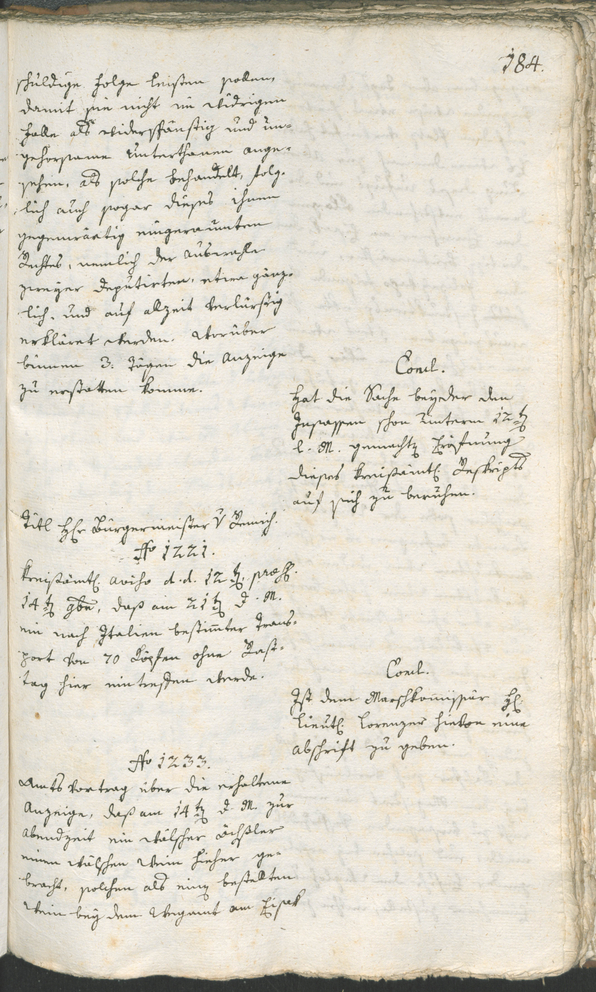 184.
schuldige Folge leisten sollen,
damit sie nicht im widrigen
Falle als widerspänstig und un-
gehorsame Unterthanen ange-
sehen, als solche behandelt, folg-
lich auch sogar dieses ihnen
gegenwärtig eingeraumten
Rechtes, nemlich der Auswahle
zweyer Deputirten, etwa gänz-
lich, und auf allzeit verlurstig
erkläret werden. Worüber
binnen 3. Tägen die Anzeige
zu erstatten komme.
Concl.
Hat die Sache bey der den
Insassen schon unterm 12t
l. M. gemachten Eröfnung
dieses kreisämtl. Reskripts
auf sich zu beruhen.
Titl Hr Bürgermeister v
No 1221.
Kreisämtl. aviso d. d. 12t præs.
14t gbe, daß am 21t d. M.
ein nach Italien bestimmter Trans-
port von 70 Köpfen ohne Rast-
tag hier eintreffen werde.
Concl.
Ist dem Marschkommissär H.
Lieut. Lorenzer hievon eine
Abschrift zu geben.
No 1233.
Amts Vortrag über die erhaltene
Anzeige, daß am 14t d. M. zur
Abendzeit ein wälscher
einen wälschen Wein hieher ge-
bracht, solchen als einen bestellten
Wein bey dem Wegamt am Eisak